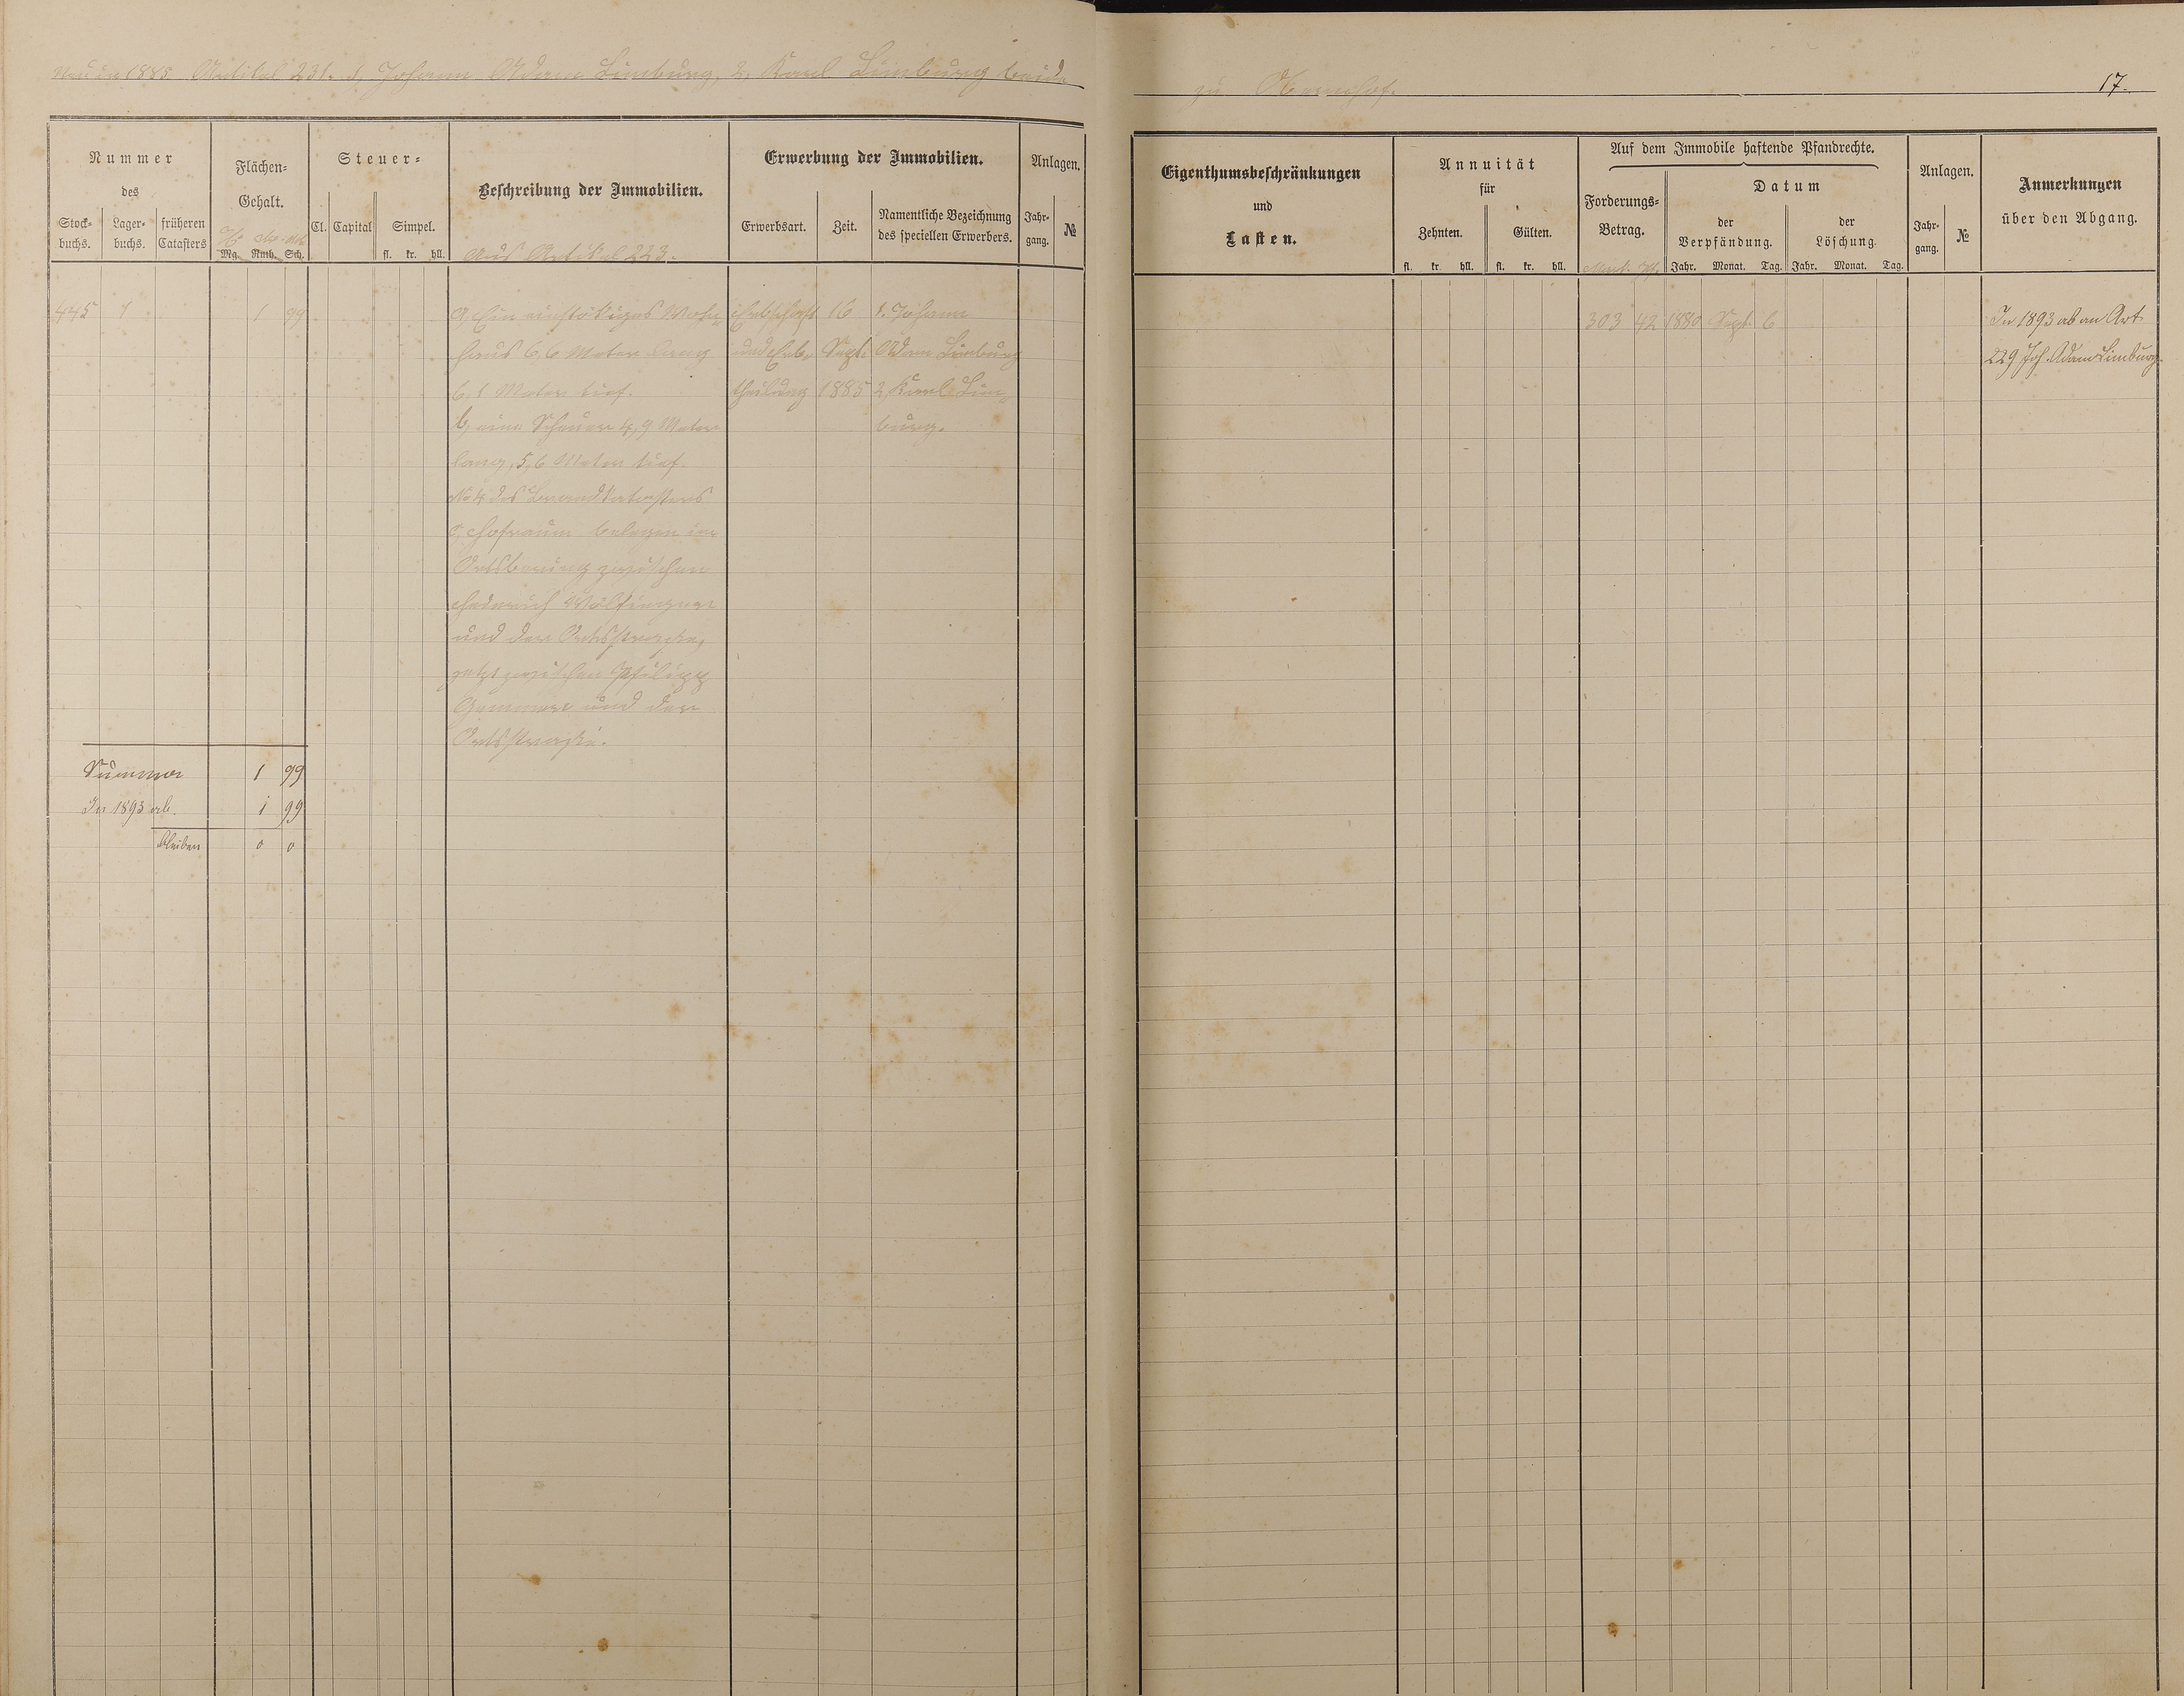 Neu in 1885 Artikel 231. 1, Johann Adam Limburg, 2, Karl Limburg beide
zu Obernhof.
17.
Nummer
des
Stock-
buchs.
Lager-
buchs.
früheren
Catasters
Flächen-
Gehalt.
Mg. Ruth. Sch.
Steuer-
Cl. Capital
Simpel.
fl. kr. hll.
Beschreibung der Immobilien.
Aus Artikel 223.
Erwerbung der Immobilien.
Erwerbsart.
Zeit.
Namentliche Bezeichnung
des speciellen Erwerbers.
Anlagen.
Jahr-
gang.
№
Eigenthumsbeschränkungen
und
Lasten.
Annuität
für
Zehnten.
Gülten.
fl. kr. hll. fl. kr. hll.
Auf dem Immobile haftende Pfandrechte.
Forderungs-
Betrag.
Mark. Pf.
Datum
der
Verpfändung.
Jahr. Monat. Tag.
der
Löschung.
Jahr. Monat. Tag.
Anlagen.
Jahr-
gang.
№
Anmerkungen
über den Abgang.
445 1 1 99
a, Ein einstökiges Wohn-
haus 6,6 Meter lang
6,1 Meter tief.
b, eine Scheuer 4,9 Meter
lang, 5,6 Meter tief.
No 4 des Brandkatasters
c, Hofraum belegen im
Ortsbering zwischen
und der Ortsstraße,
jetzt zwischen Philipp
und der
Ortsstraße.
Erbschaft
und Erb-
theilung
16
Sept.
1885
1. Johann
Adam Limburg
2, Karl Lim-
burg.
303 42 1880 Sept. 6
In 1893 ab an Art
229 Joh. Adam Limburg.
Summa 1 99
In 1893 ab. 1 99
bleiben 0 0